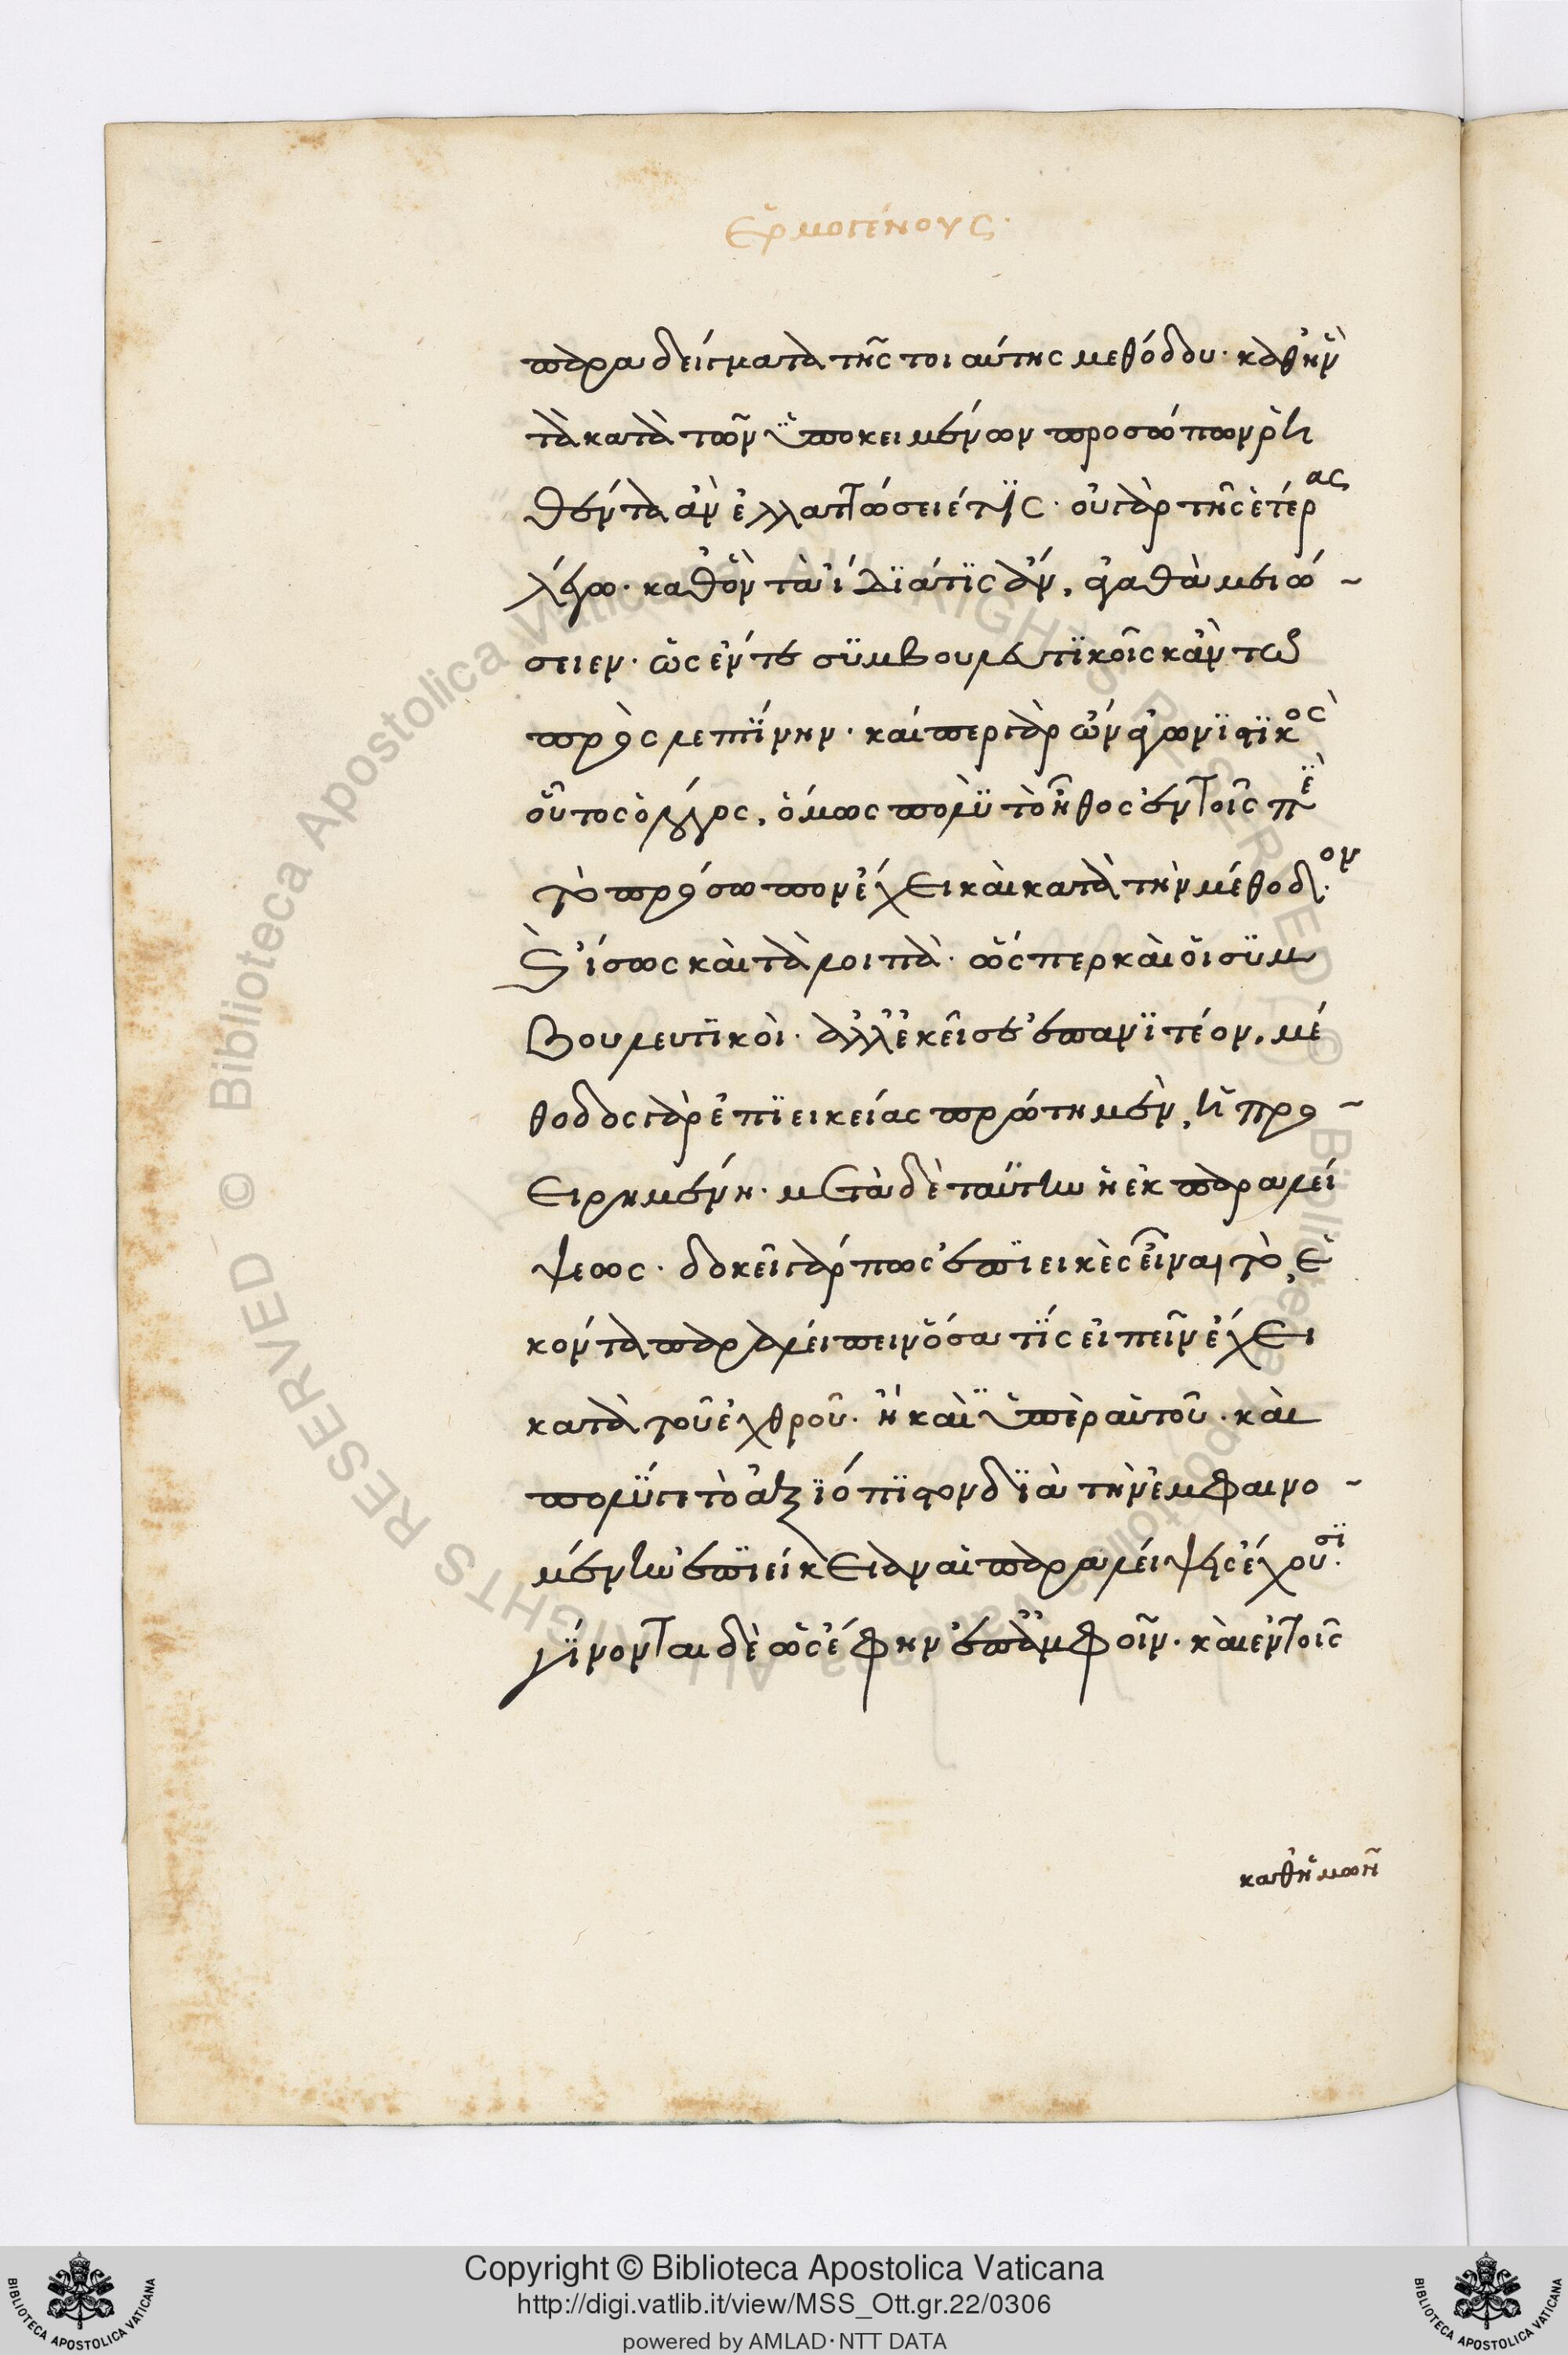 Ἑρμογένους.
παραδείγματα τῆς τοιαύτης μεθόδου. καθ' ἣν
τὰ κατὰ τῶν ὑποκειμένων προσώπων ῥη
θέντα ἂν ἐλλαττώσειέ τις. οὐ γὰρ τῆς ἑτέρας
λέγω. καθ' ὃν τὰ ἰδιά τις ἂν, ἀγαθὰ μειώ
σειεν. ὡς ἔν τε συμβουλευτικοῖς κἀν τῷ
πρὸς λεπτίνην. καίπερ γὰρ ὢν ἀγωνιστικὸς
οὗτος ὁ λόγος, ὅμως πολὺ τὸ ἦθος ἐν τοῖς πε
τὸ πρόσωπον ἔχει καὶ κατὰ τὴν μέθοδον.
ἴσως καὶ τὰ λοιπὰ. ὥσπερ καὶ οἱ συμ
βουλευτικοὶ. ἀλλ' ἐκεῖσε ἐπανιτέον. μέ
θοδος γὰρ ἐπιεικείας πρώτη μὲν, ἡ προ
ειρημένη. μετὰ δὲ ταύτην ἡ ἐκ παραλεί
ψεως. δοκεῖ γὰρ πως ἐπιεικὲς εἶναι τὸ, ἑ
κόντα παραλείπειν ὅσα τίς εἰπεῖν ἔχει
κατὰ τοῦ ἐχθροῦ. ἢ καὶ ὑπὲρ αὑτοῦ. καὶ
πολύ γε τὸ ἀξιόπιστον διὰ τὴν ἐμφαινο
μένην ἐπιείκειαν αἱ παραλείψεις ἔχουσι.
γίνονται δὲ ὡς ἔφην ἐπ' ἀμφοῖν. καὶ ἐν τοῖς
καθ' ἡμῶν ἢ
Copyright © Biblioteca Apostolica Vaticana
http://digi.vatlib.it/view/MSS_Ott.gr.22/0306
powered by AMLAD·NTT DATA